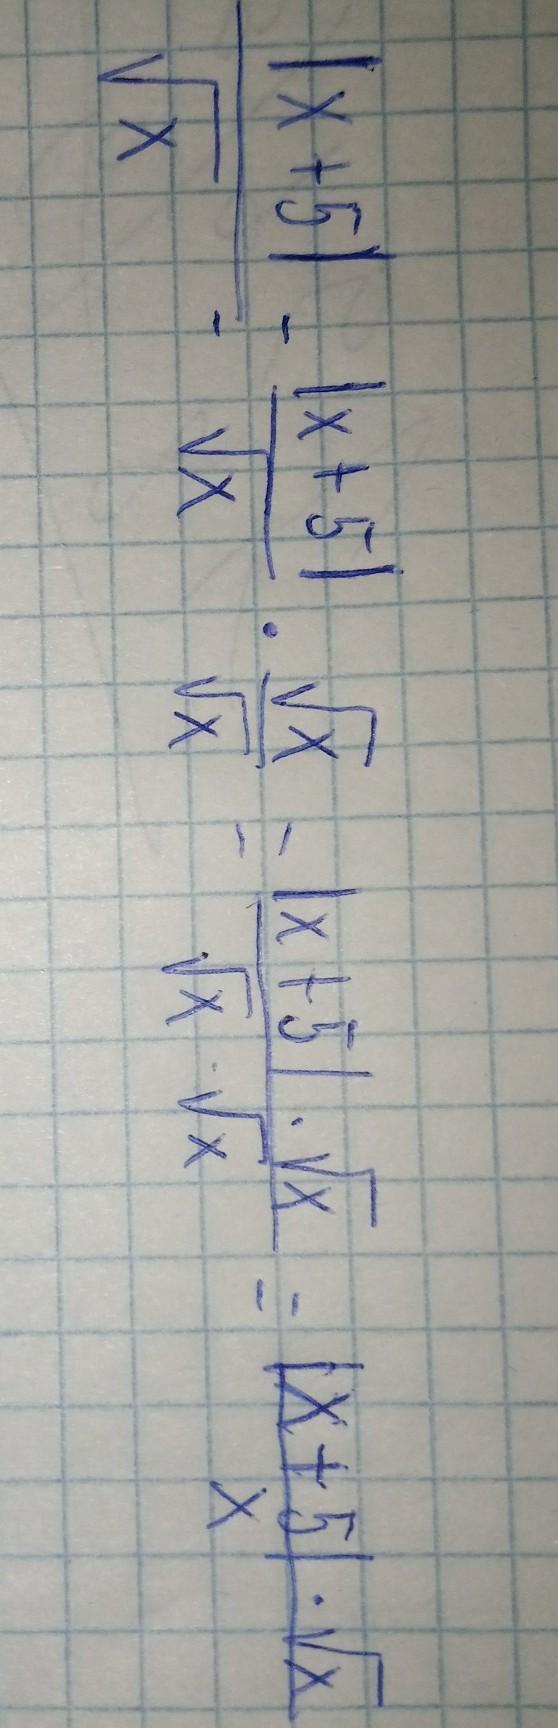 |x+5|/√x = |x+5|/√x · √x/√x = |x+5|·√x/√x·√x = |x+5|·√x/x